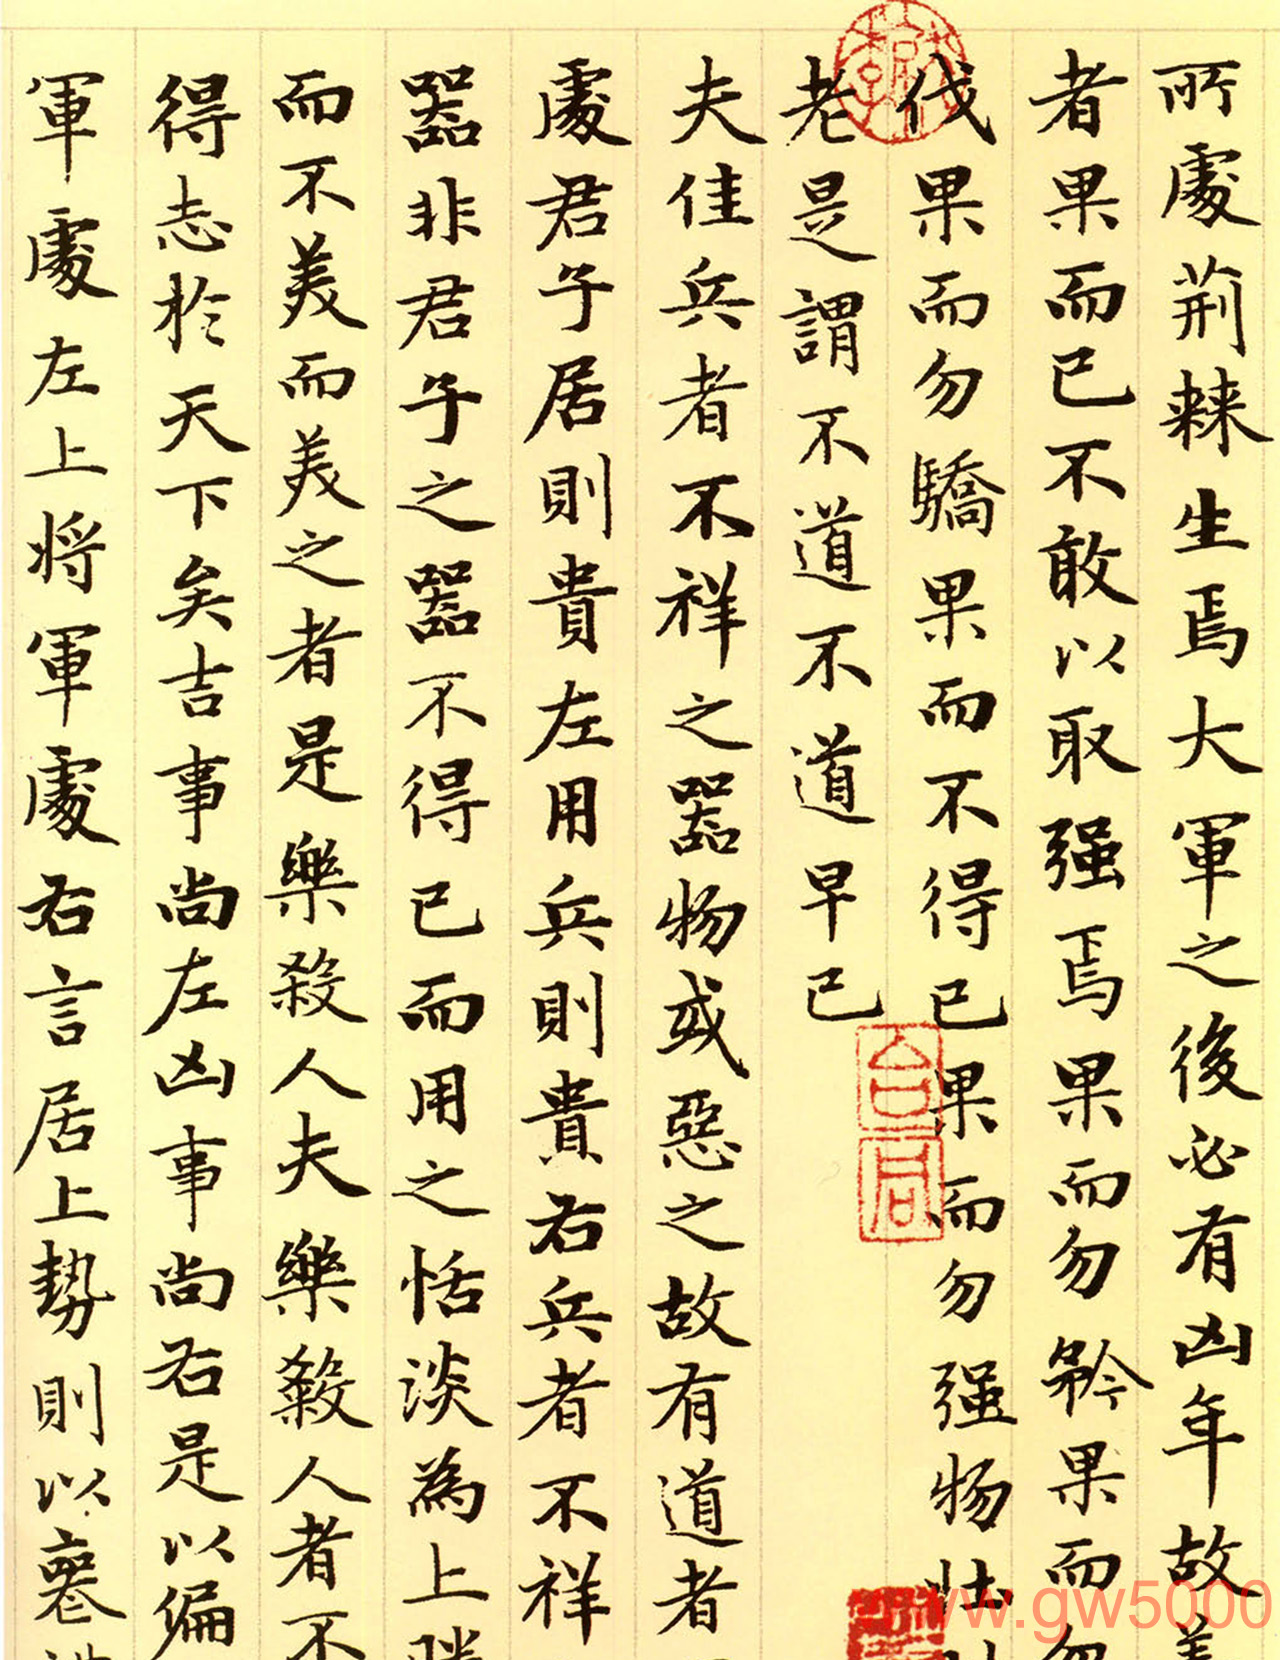 所處荊棘生焉大軍之後必有凶年故善
者果而已不敢以取强焉果而勿矜果而勿
伐果而勿驕果而不得已果而勿强物壯則
老是謂不道不道早已
夫佳兵者不祥之器物或惡之故有道者不
處君子居則貴左用兵則貴右兵者不祥
器非君子之器不得已而用之恬淡為上勝
而不美而美之者是樂殺人夫樂殺人者不
得志於天下矣吉事尚左凶事尚右是以偏
軍處左上将軍處右言居上勢則以喪禮
台眉
www.gw5000